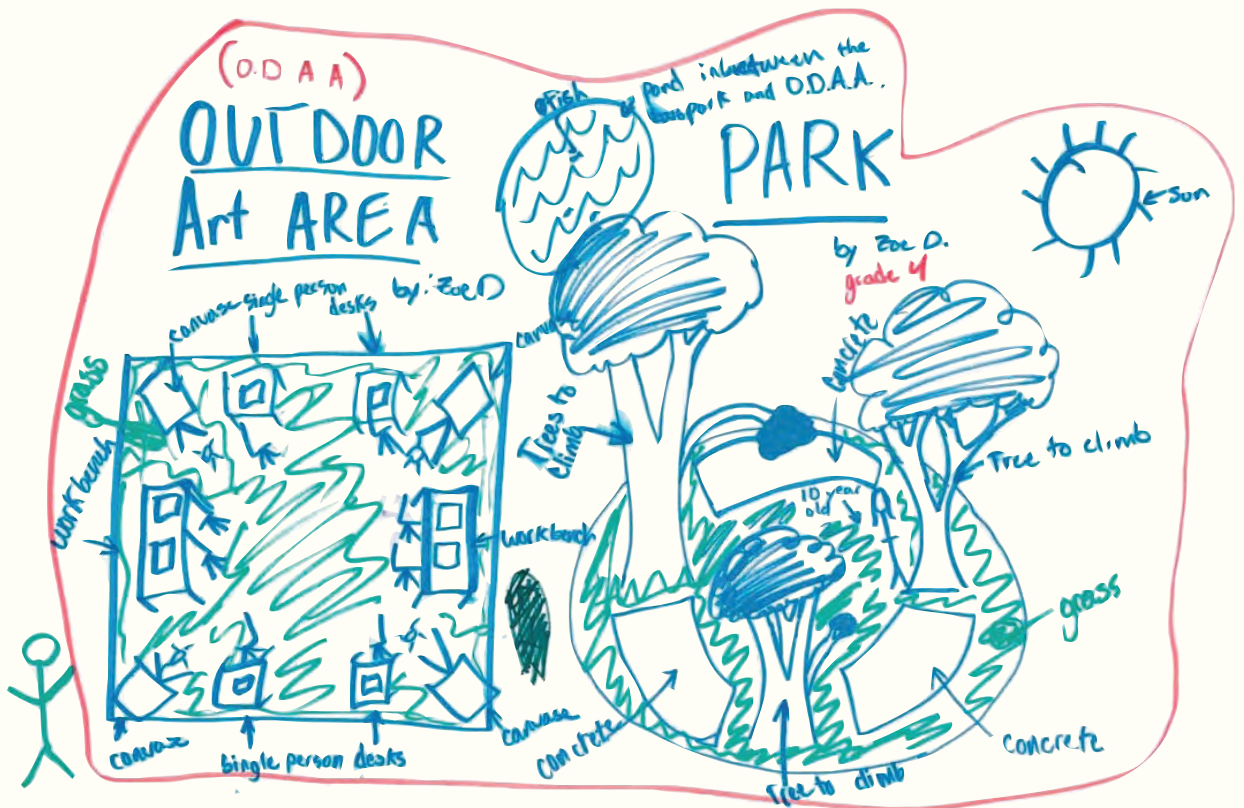 (O.D A A)
OUTDOOR
Art AREA
by: Zoe D
canvase
single person
desks
grass
workbench
workbench
canvase
single person desks
canvase
fish
pond inbetween the
park and O.D.A.A.
PARK
by Zoe D.
grade 4
sun
concrete
Trees to
climb
Tree to climb
10 year
old
grass
concrete
Tree to climb
concrete